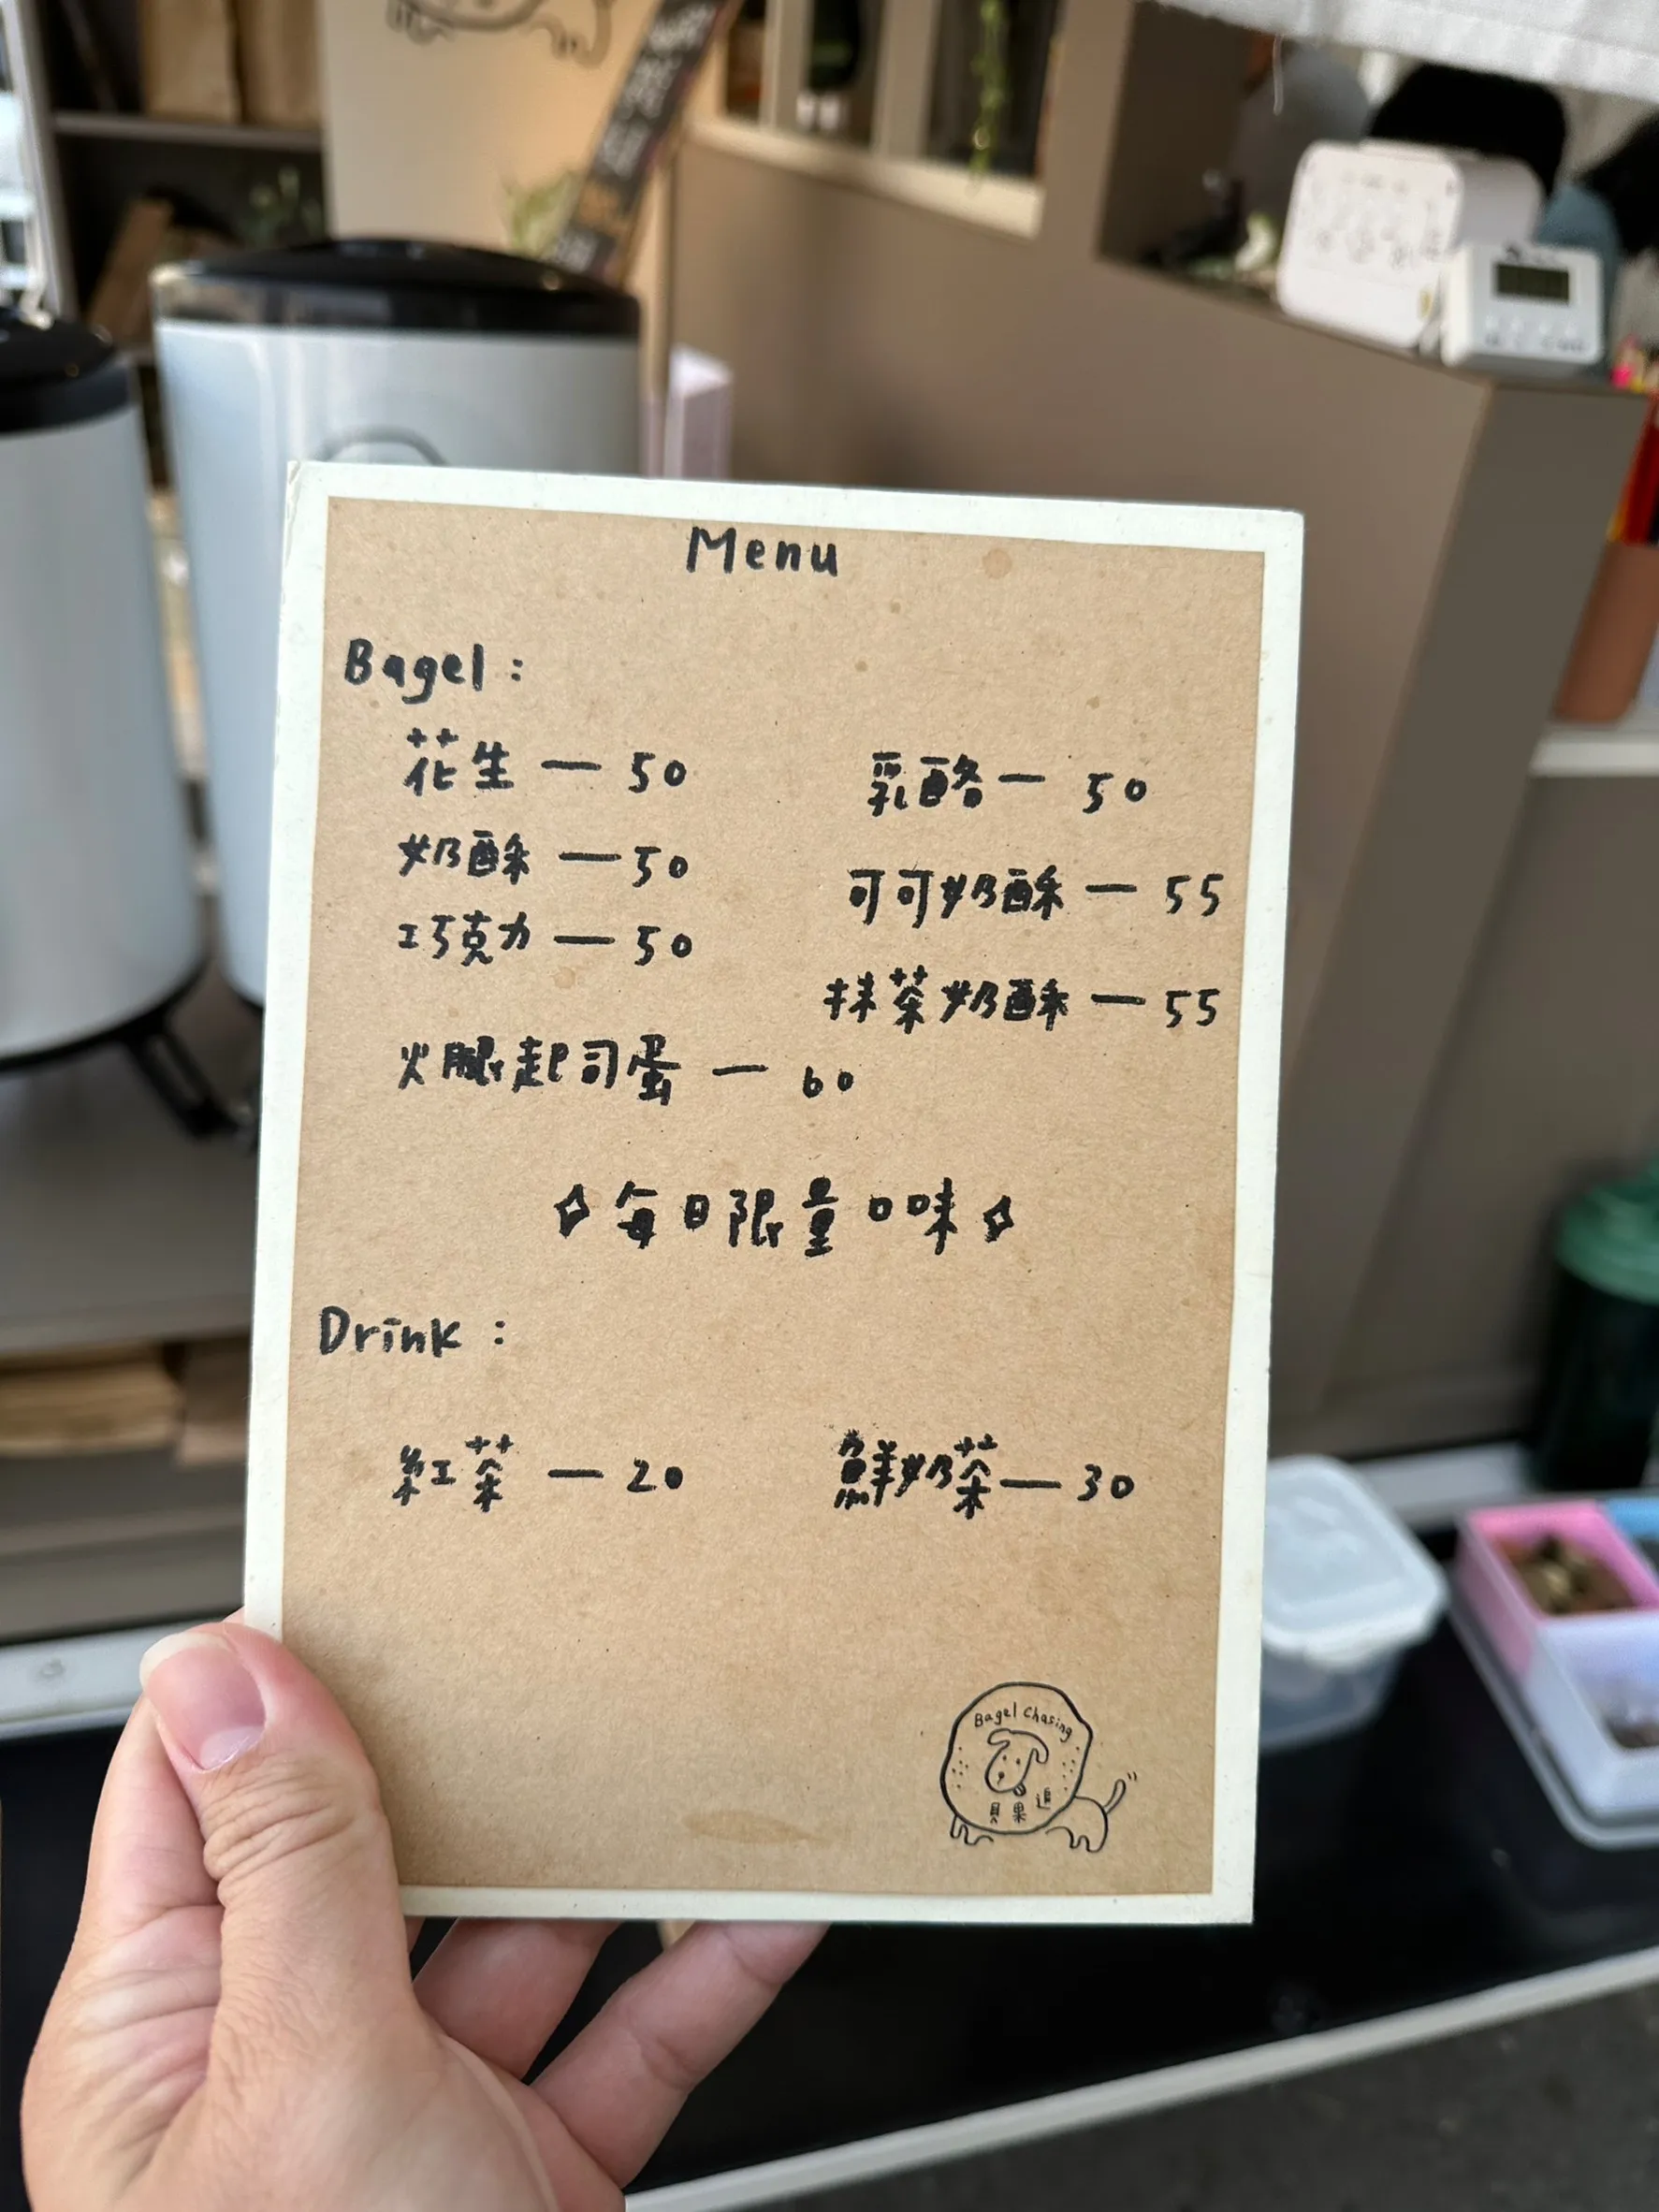 Menu
Bagel :
花生 — 50
乳酪 — 50
奶酥 — 50
可可奶酥 — 55
巧克力 — 50
抹茶奶酥 — 55
火腿起司蛋 — 60
✧ 每日限量口味 ✧
Drink :
紅茶 — 20
鮮奶茶 — 30
Bagel Chasing
貝果追